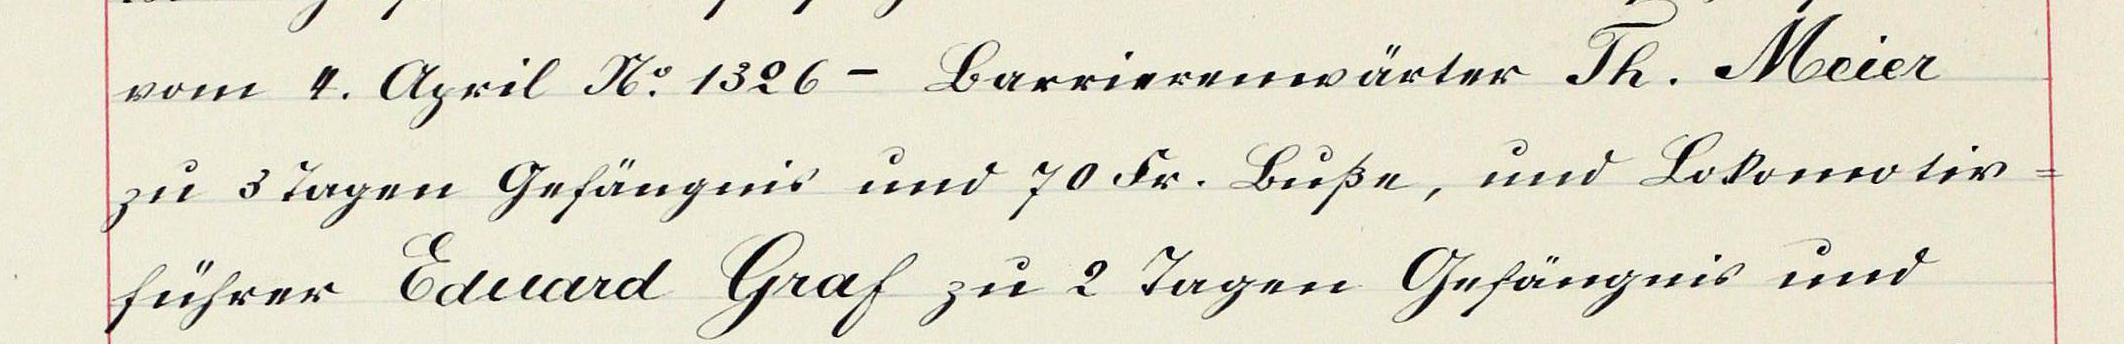 vom 4. April No. 1326 - Barrierenwärter Th. Meier
zu 3 Tagen Gefängnis und 70 Fr. Buße, und Lokomotiv=
führer Eduard Graf zu 2 Tagen Gefängnis und